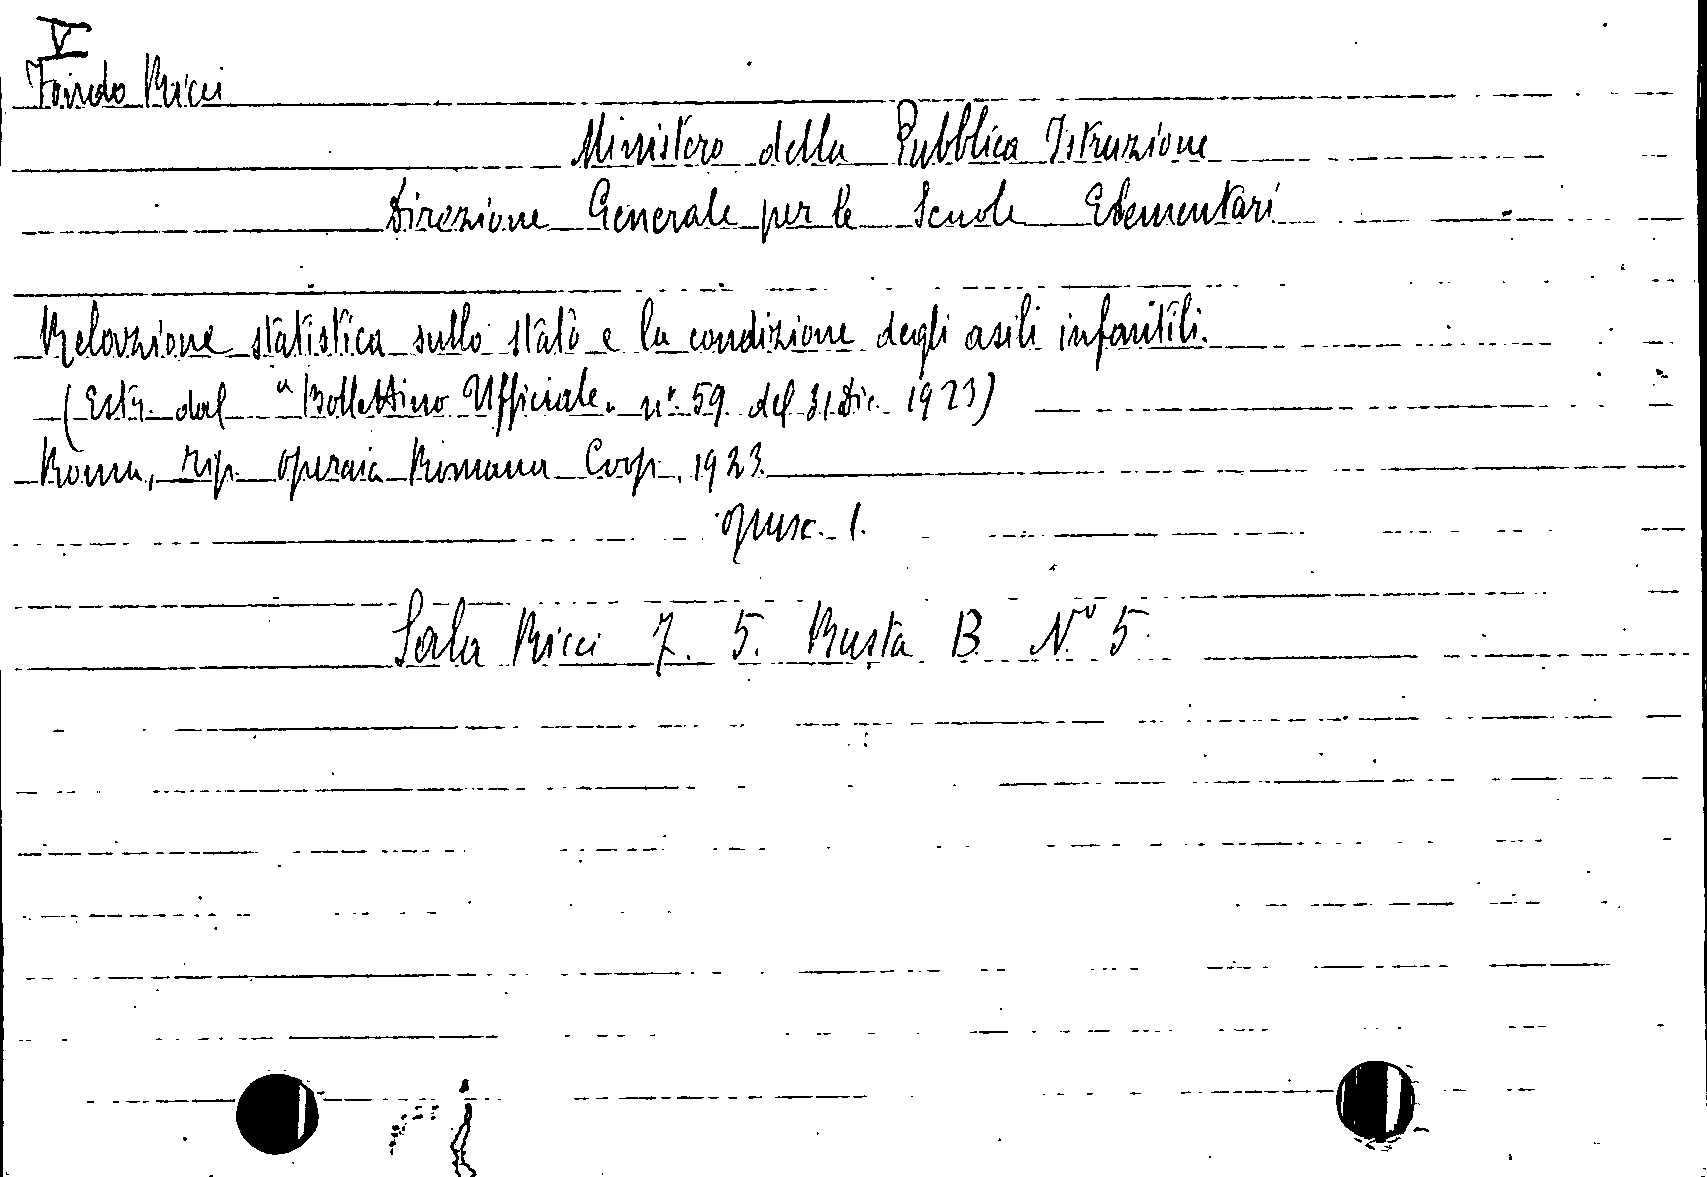 V
Fondo Ricci
Ministero della Pubblica Istruzione
Direzione Generale per le Scuole Elementari
Relazione statistica sullo stato e la condizione degli asili infantili.
(Estr. dal "Bollettino Ufficiale" nº 59 del 31 Dic. 1923)
Roma, Tip. Operaia Romana Coop. 1923
opusc. 1.
Sala Ricci 7. 5. Busta B Nº 5